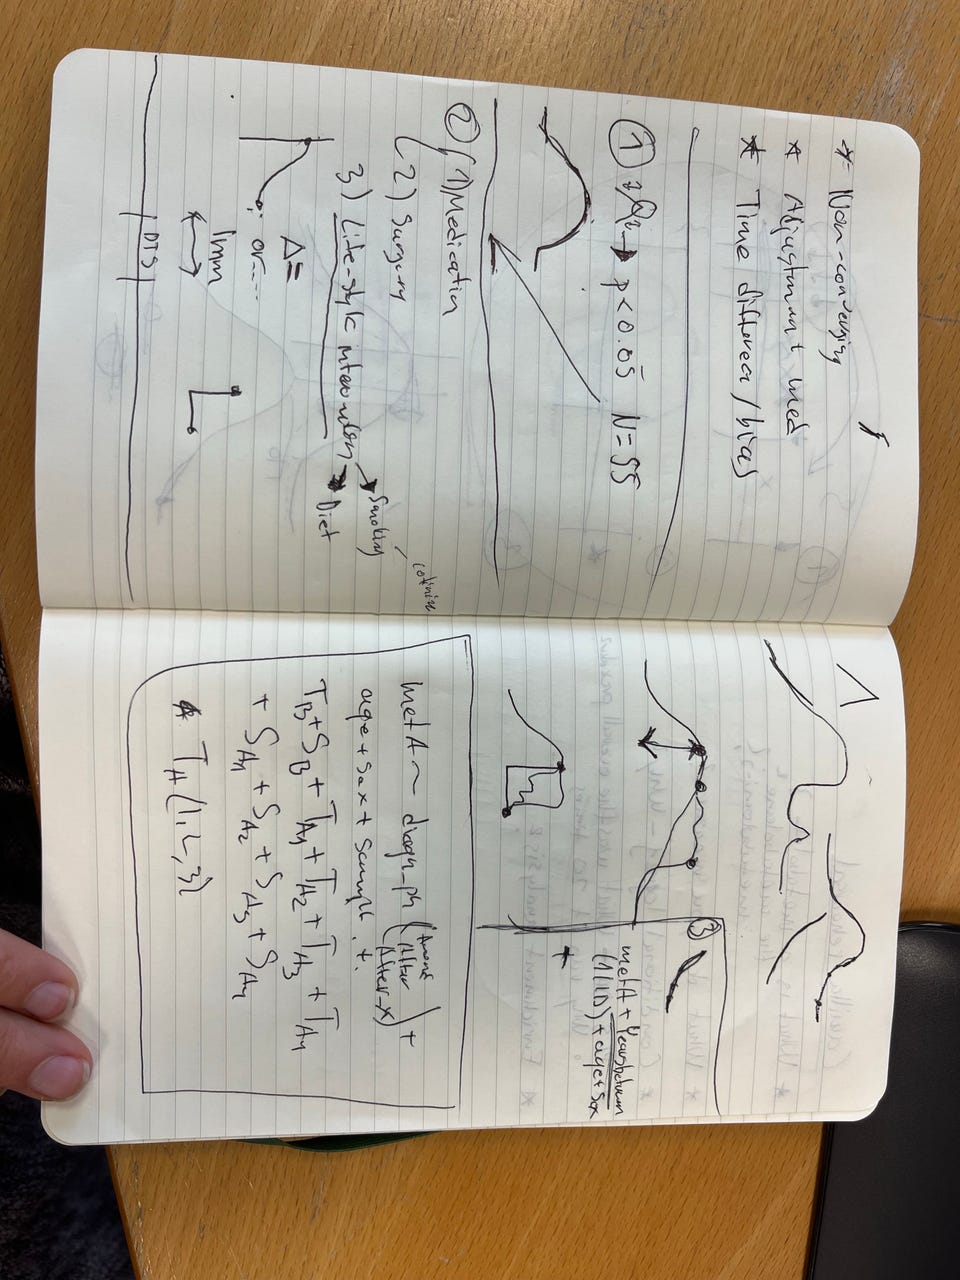 * Non-converging
* Adjustment med
* Time differences / bias
① → p < 0.05 N = 55
② (1) Medication
(2) Surgery
3) Life-style intervention → Smoking
→ Diet
cotinine
Δ =
or....
1mm
DTS
1
③ metA + Yearsbetween
(1|ID) + age + sex
*
metA ~ diagn_ph (
After
After-x) +
age + sex + +
T_B + S_B + T_A1 + T_A2 + T_A3 + T_A4
+ S_A1 + S_A2 + S_A3 + S_A4
T_A (1, 2, 3)